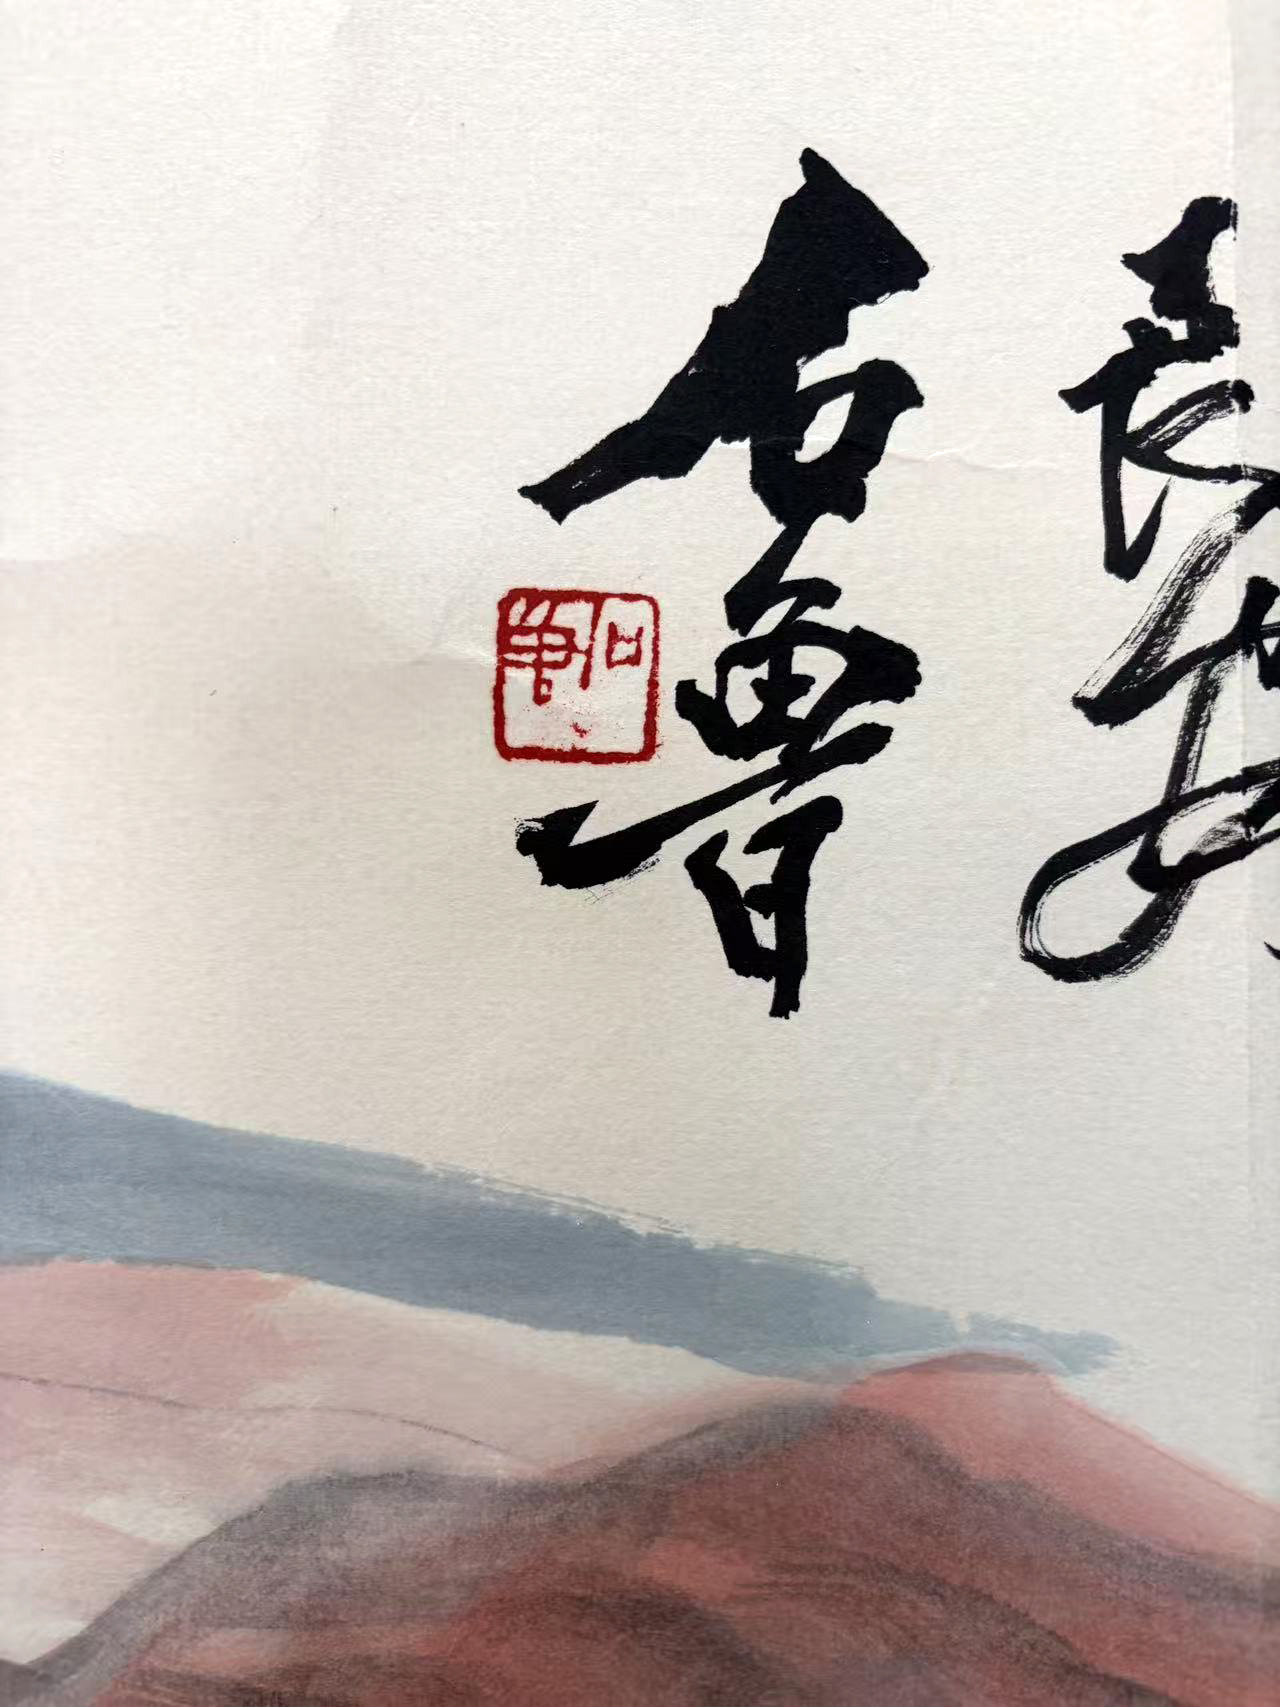 長安
石魯